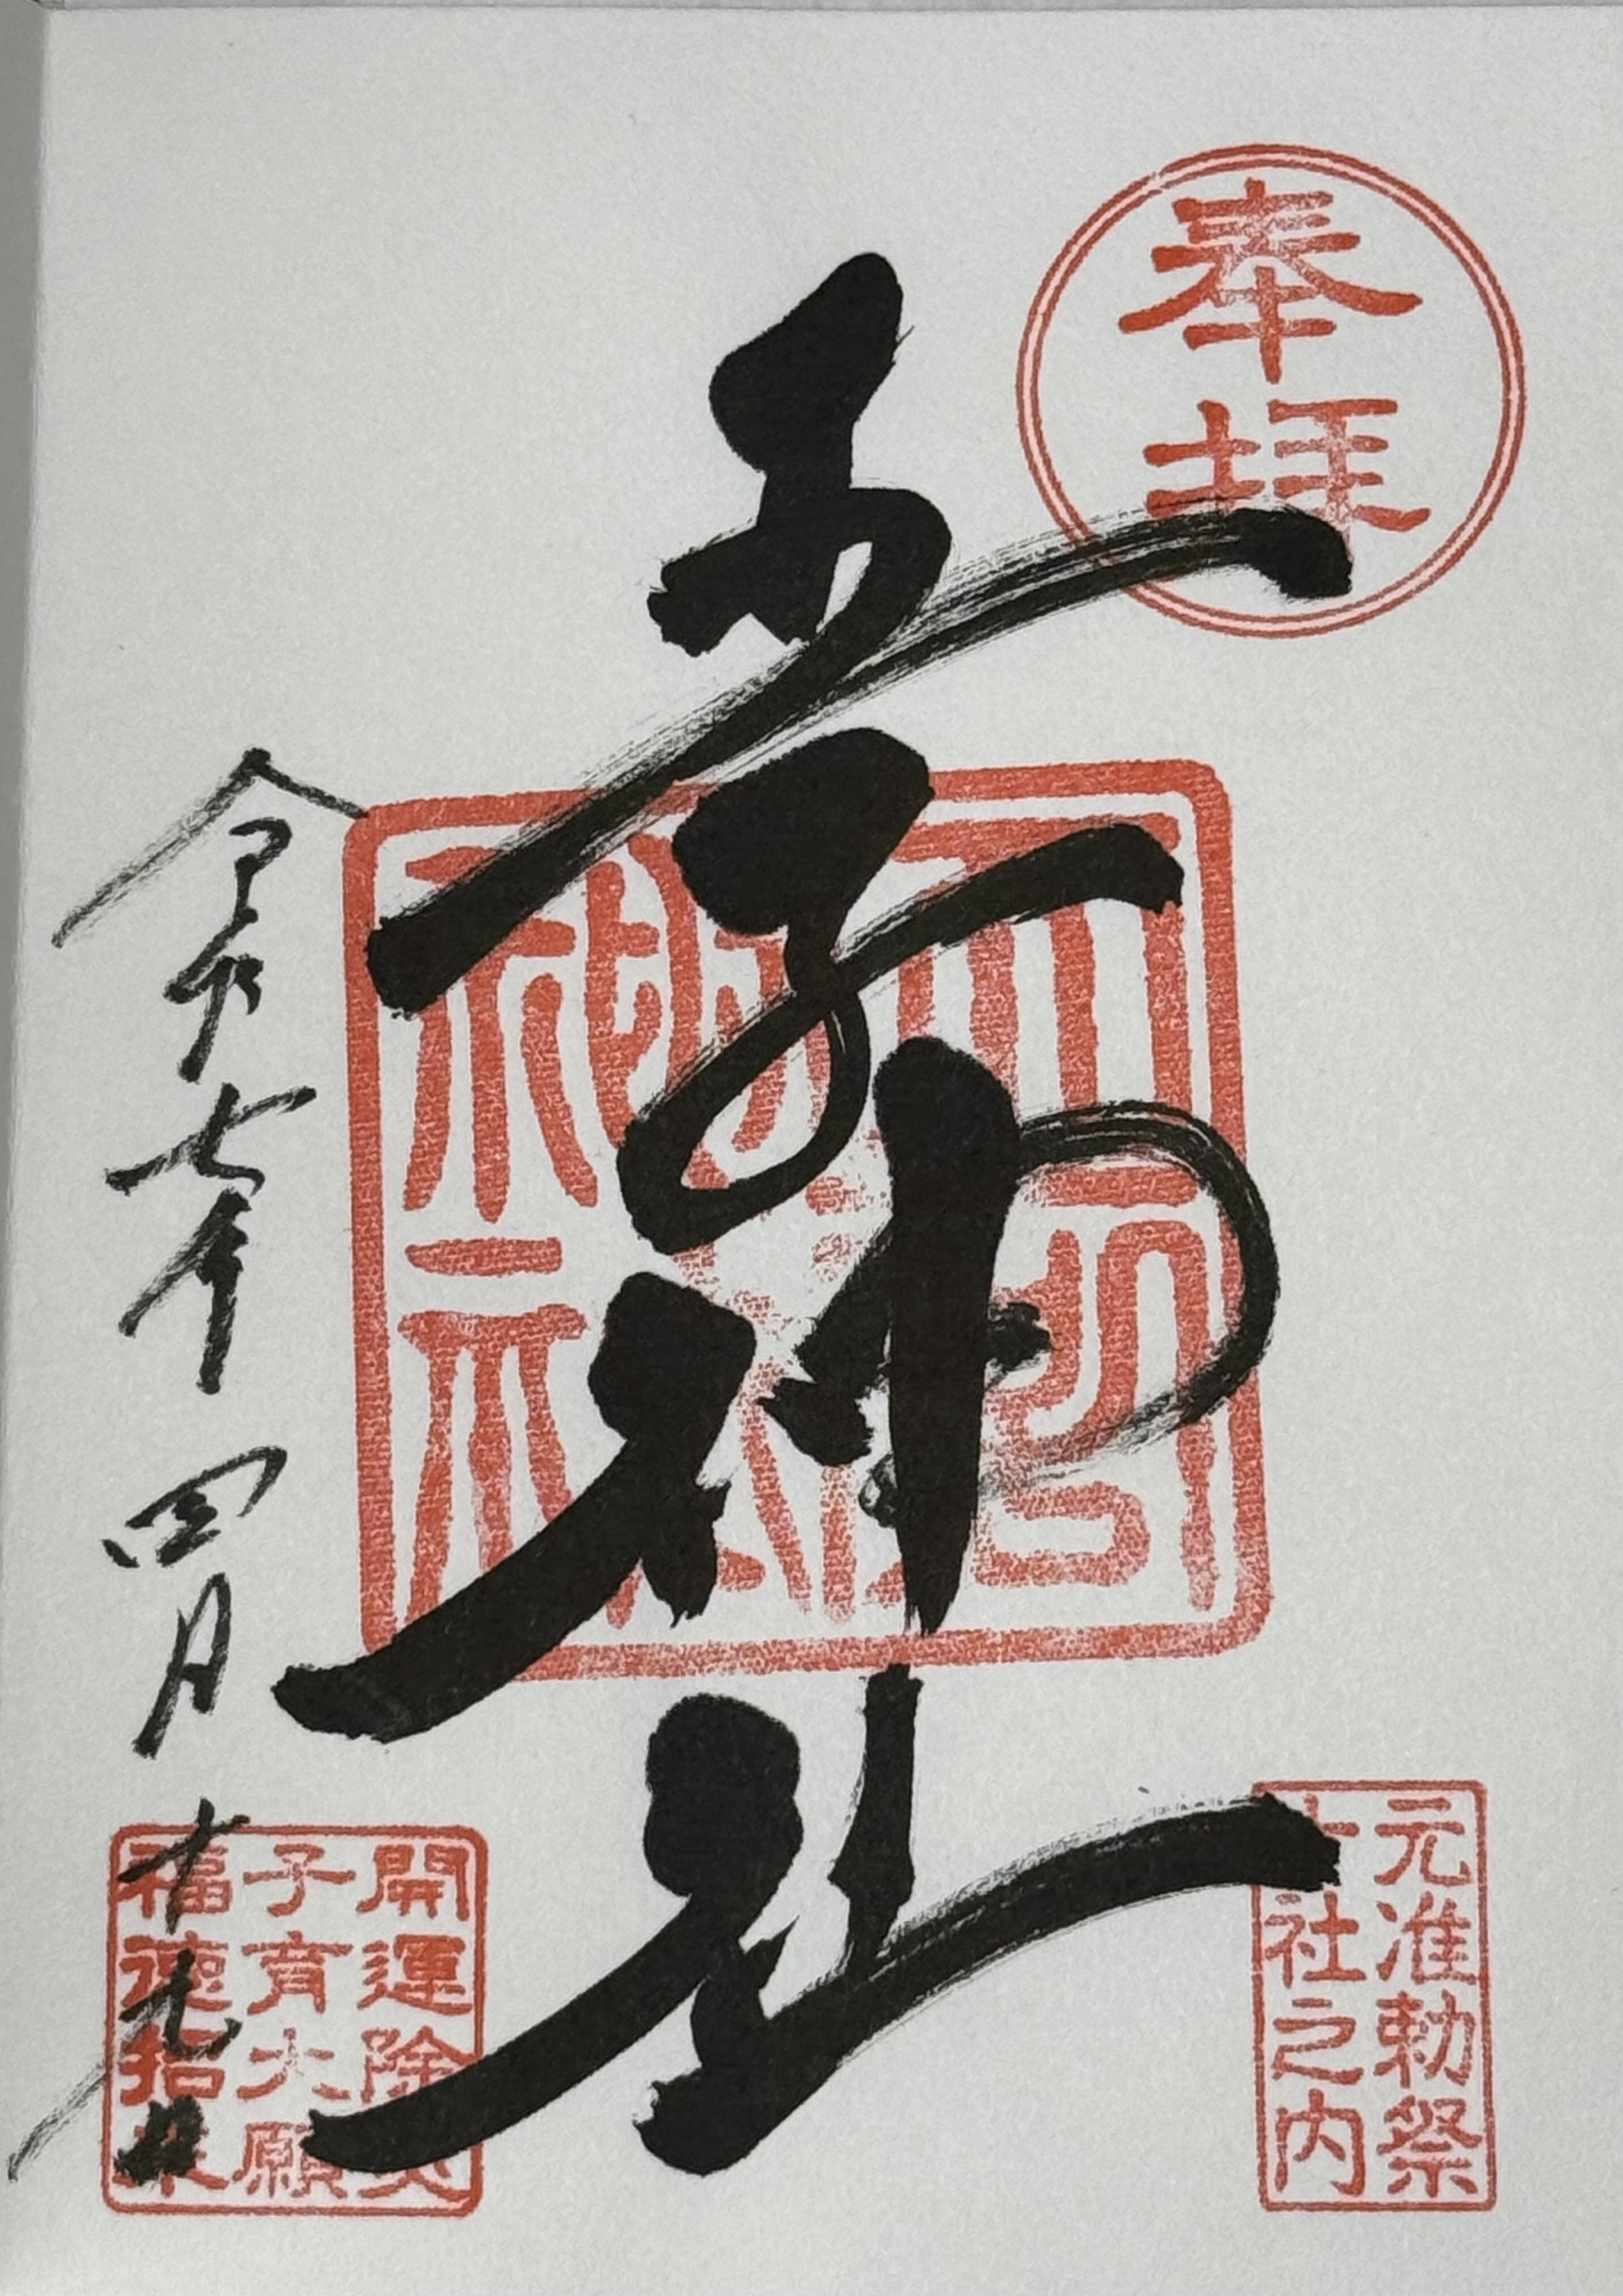 奉拝
元准勅祭
十社之内
王子神社
開運除災
子育大願
福徳招来
令和七年四月十七日